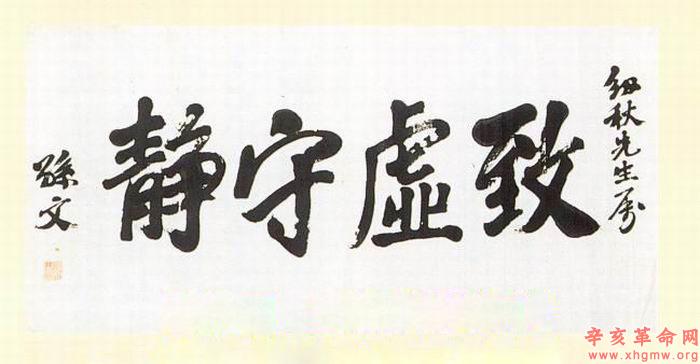 紉秋先生属
致虛守静
孫文
辛亥革命网
www.xhgmw.org